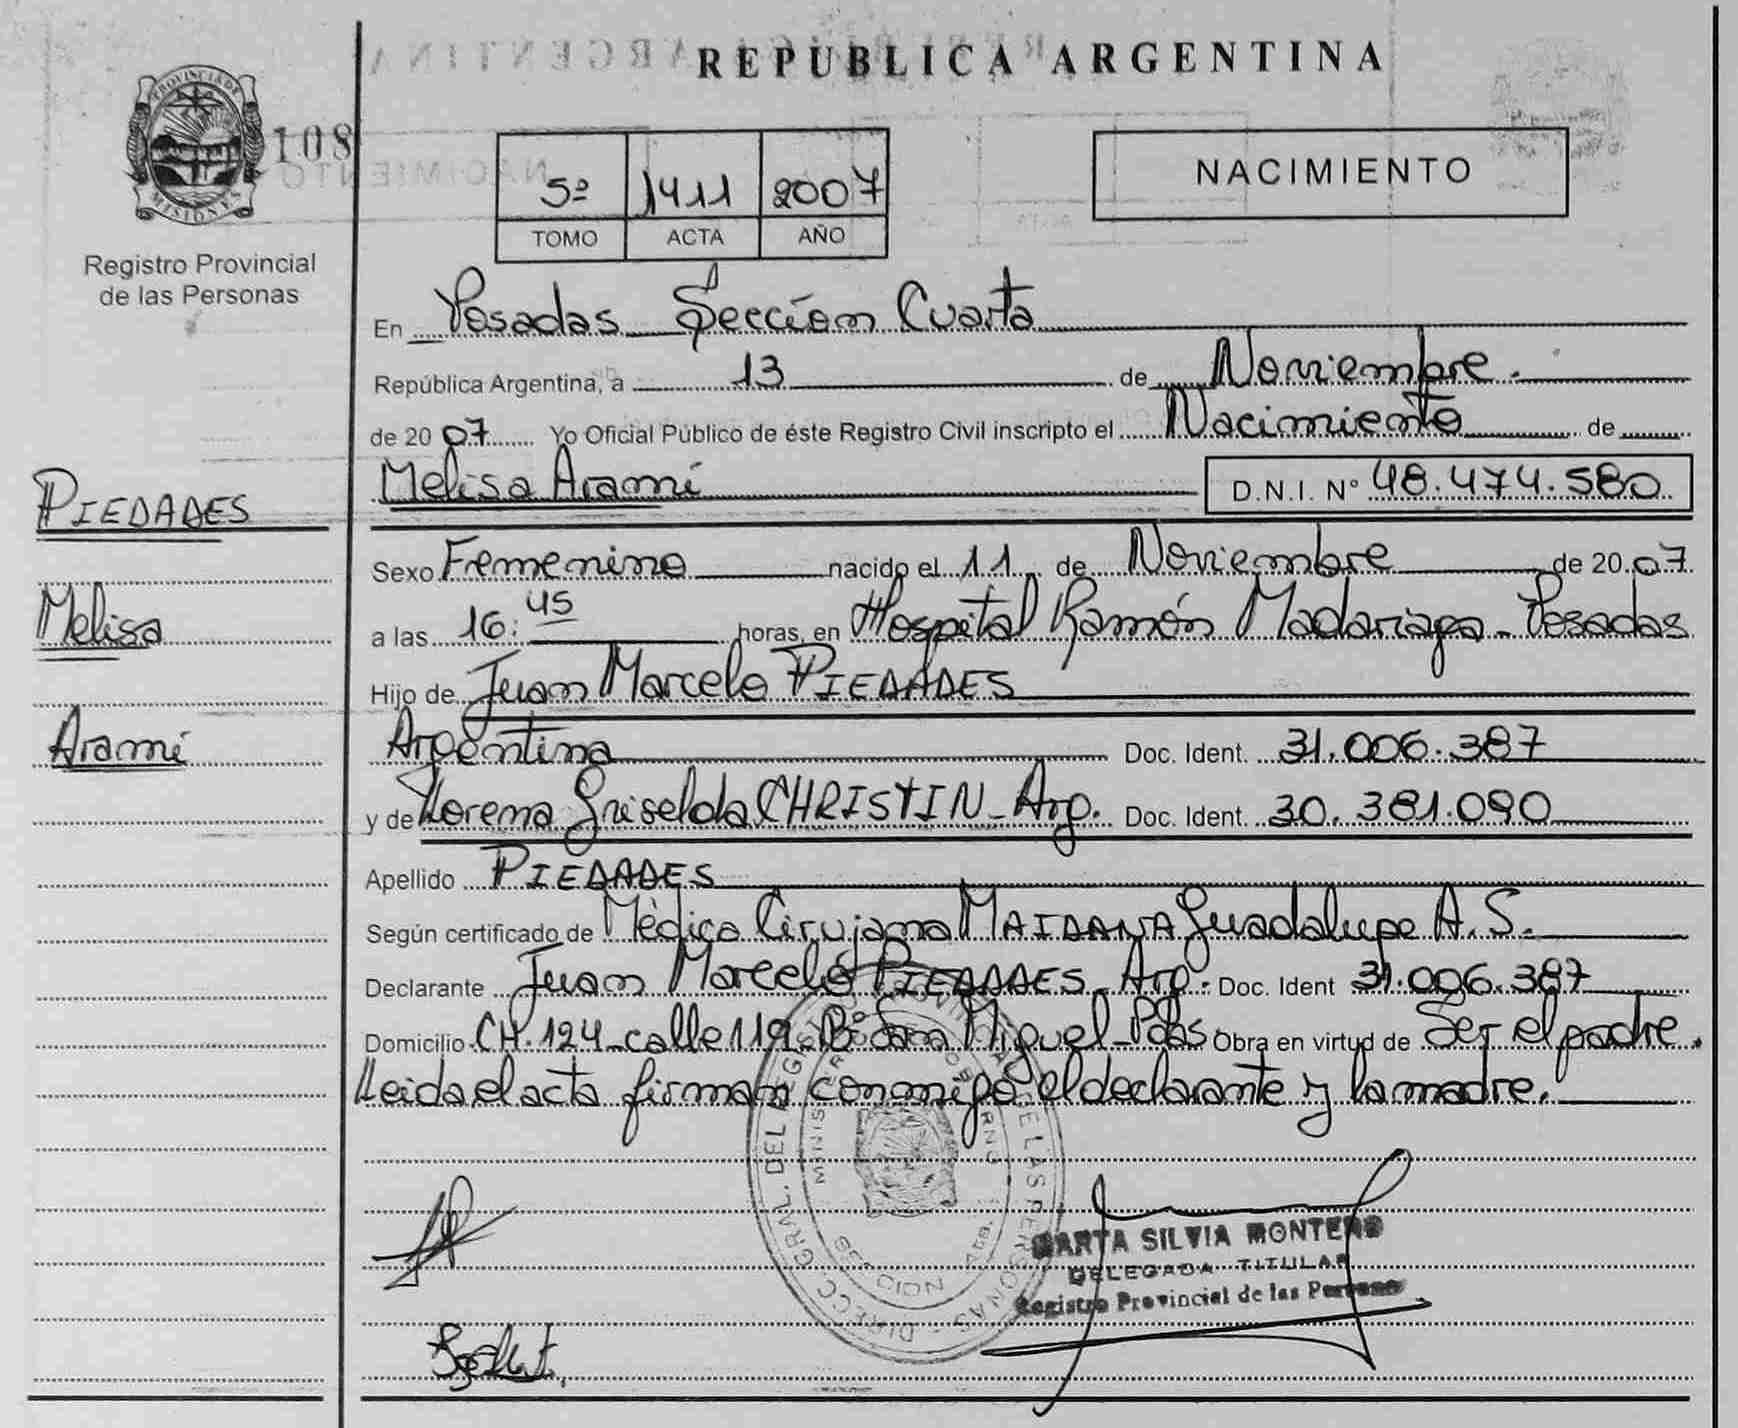 REPUBLICA ARGENTINA
PROVINCIA DE MISIONES
108
Registro Provincial
de las Personas
5º 1411 2007
TOMO ACTA AÑO
NACIMIENTO
En Posadas Sección Cuarta
República Argentina, a 13 de Noviembre.
de 2007 Yo Oficial Público de éste Registro Civil inscripto el Nacimiento de
Melisa Aramí D.N.I. Nº 48.474.580
PIEDADES
Melisa
Aramí
Sexo Femenino nacido el 11 de Noviembre de 2007
a las 16:45 horas, en Hospital Ramón Madariaga - Posadas
Hijo de Juan Marcelo PIEDADES
Argentina Doc. Ident. 31.006.387
y de Lorena Griselda CHRISTIN - Arg. Doc. Ident. 30.381.090
Apellido PIEDADES
Según certificado de Mèdica Cirujana MAIDANA Guadalupe A.S.
Declarante Juan Marcelo PIEDADES - Arg. Doc. Ident 31.006.387
Domicilio CH. 124 - calle 119 - Bº San Miguel - Pdas Obra en virtud de Ser el padre.
Leida el acta firman conmigo el declarante y la madre.
MARTA SILVIA MONTERO
DELEGADA TITULAR
Registro Provincial de las Personas